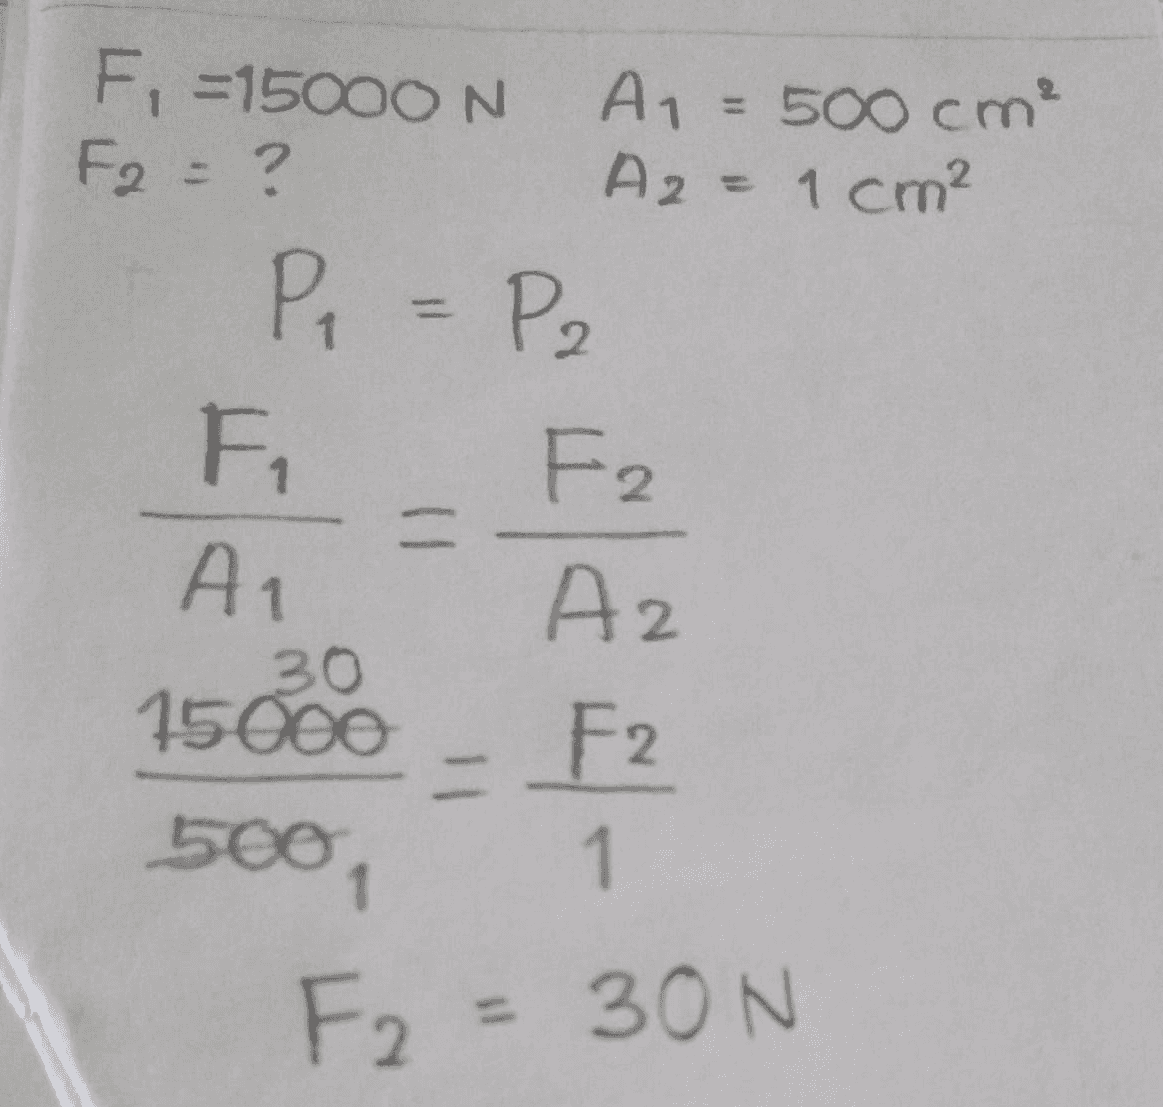 F₁ = 15000 N A₁ = 500 cm²
F₂ = ? A₂ = 1 cm²
P₁ = P₂
F₁/A₁ = F₂/A₂
30
15000/500 = F₂/1
1
F₂ = 30 N